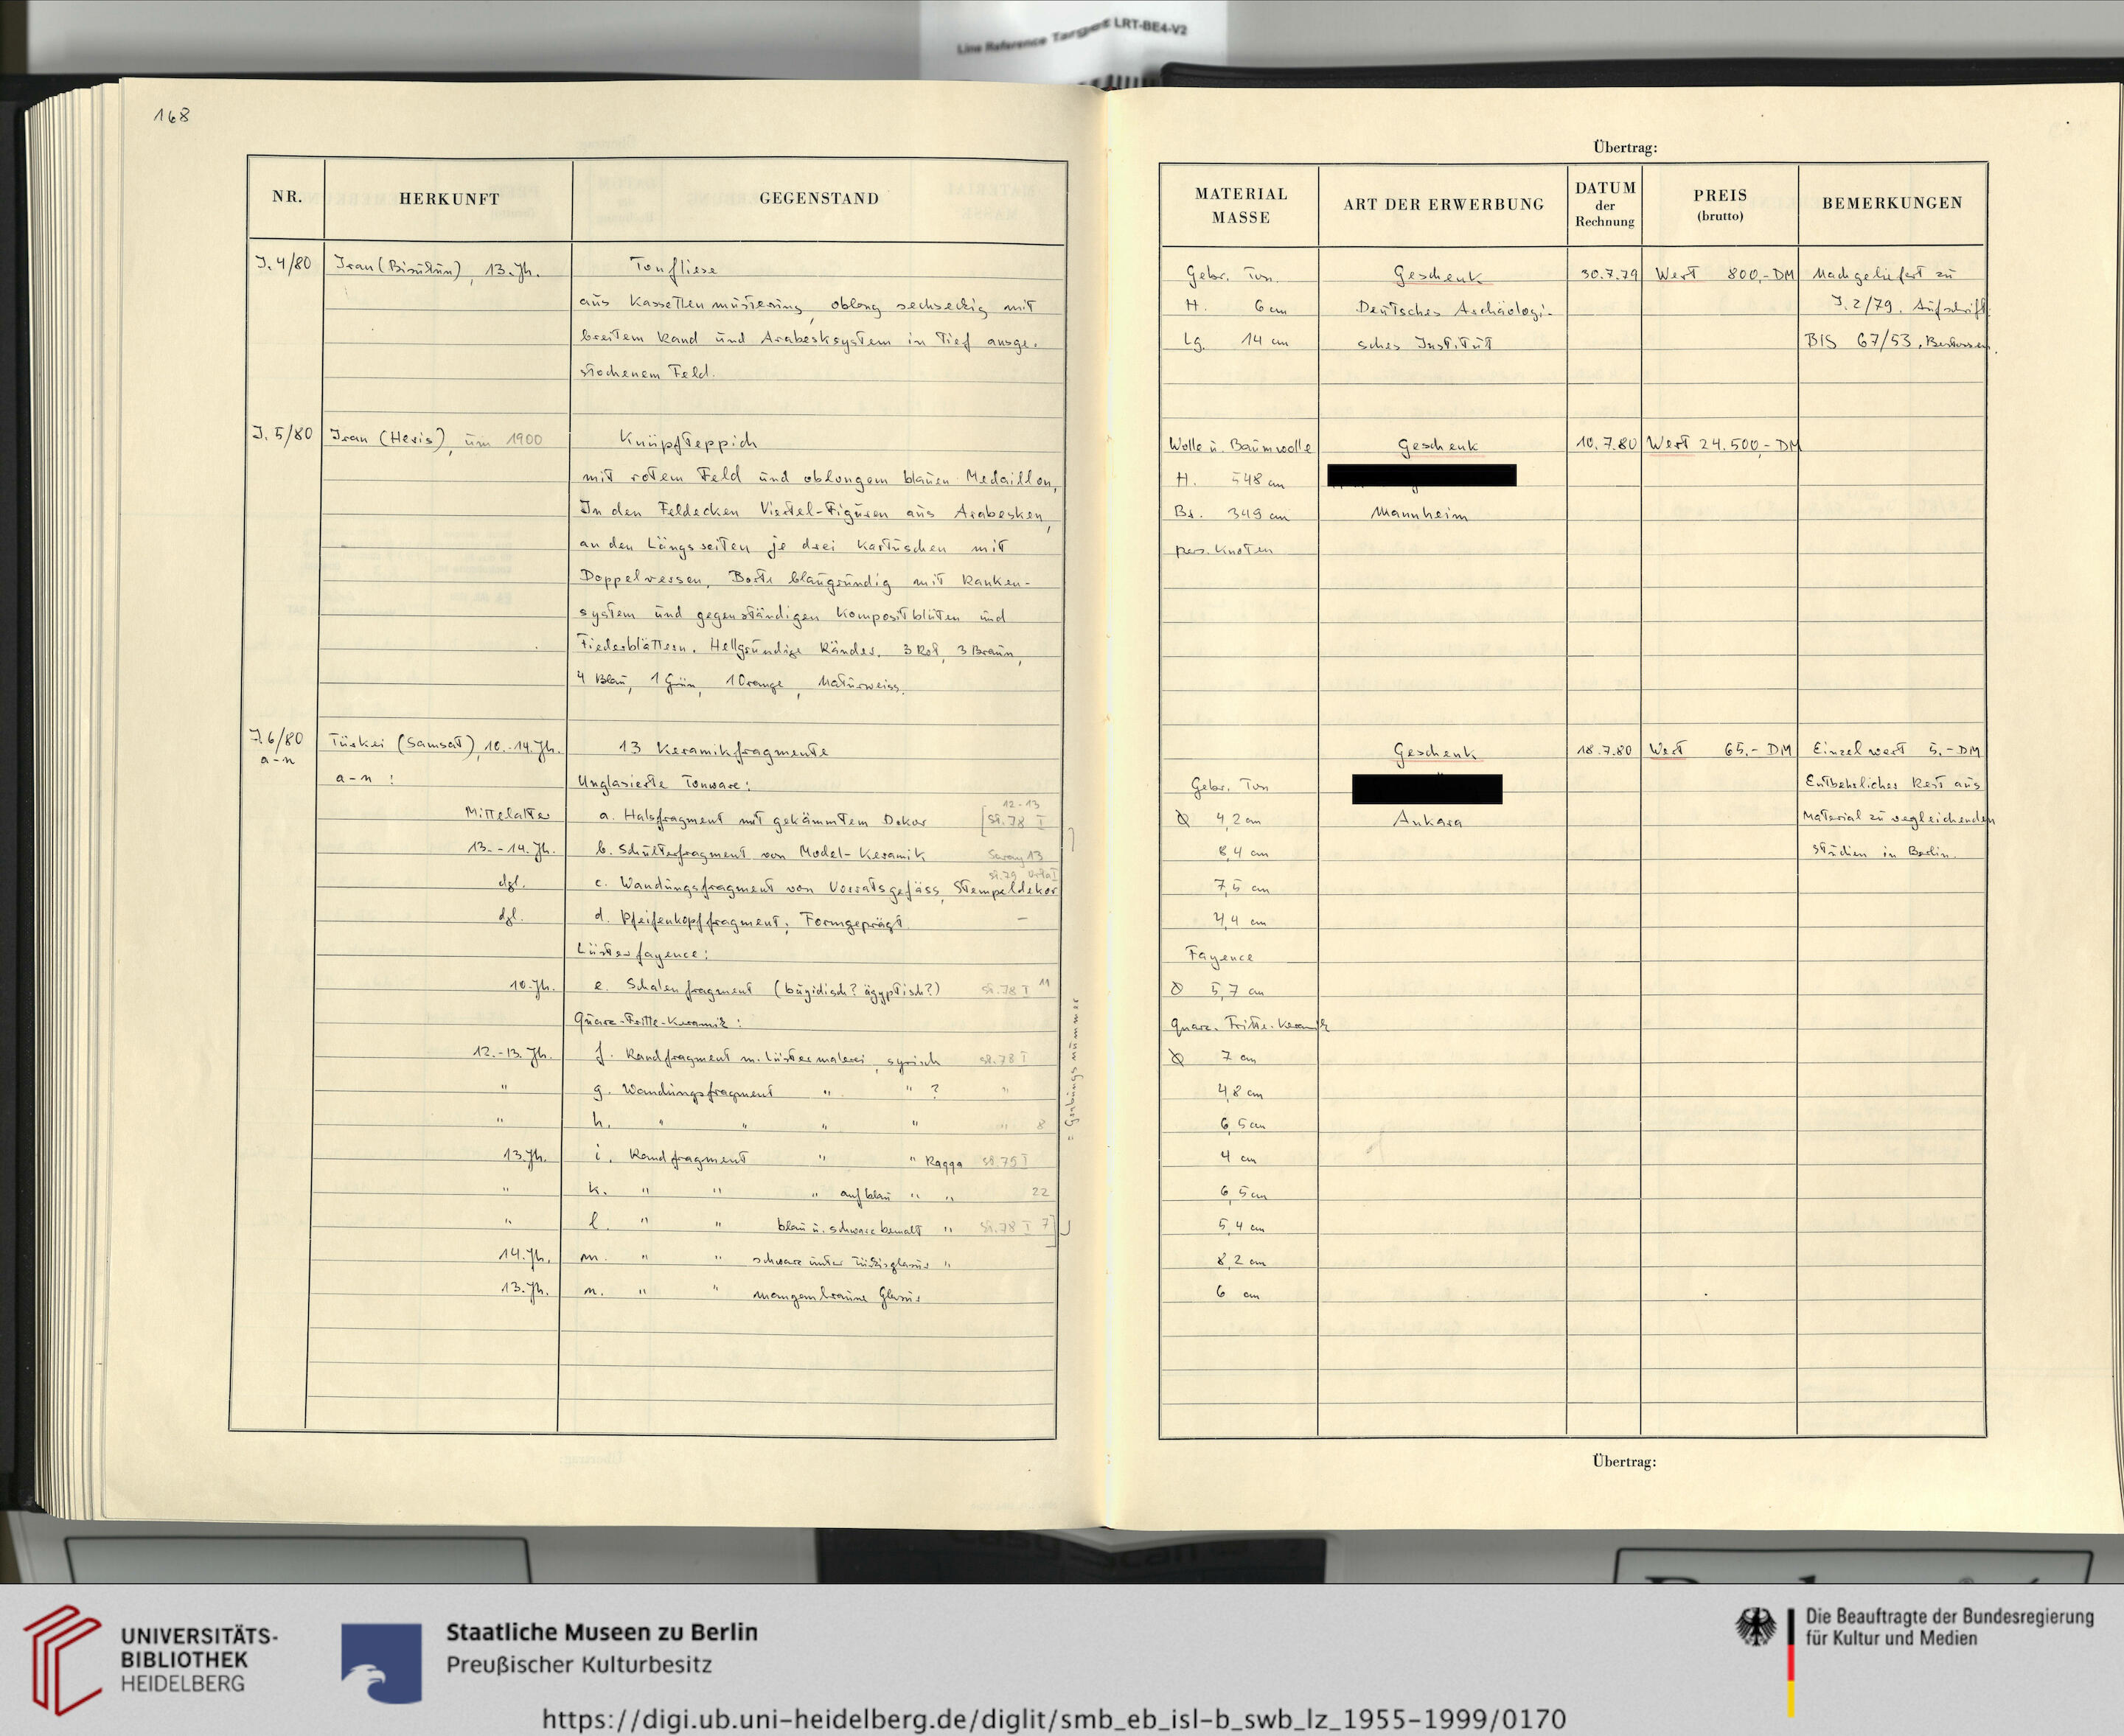 Line Reference Target LRT-BE4-V2
168
NR.
HERKUNFT
GEGENSTAND
J. 4/80
Iran (Bisutun), 13. Jh.
Tonfliese
aus Kassettenmusterung, oblong sechseckig mit
breitem Rand und Arabesksystem in tief ausge-
stochenem Feld.
J. 5/80
Iran (Heris), um 1900
Knüpfteppich
mit rotem Feld und oblongem blauen Medaillon,
In den Feldecken Viertel-Figuren aus Arabesken,
an den Längsseiten je drei Kartuschen mit
Doppelversen, Borte blaugrundig mit Ranken-
system und gegenständigen Kompositblüten und
Fiederblättern. Hellgrundige Ränder. 3 Rot, 3 Braun,
4 Blau, 1 Grün, 1 Orange, Naturweiss.
J. 6/80
a-n
Türkei (Samsat), 10.-14. Jh.
13 Keramikfragmente
a-n :
Unglasierte Tonware:
Mittelalter
a. Halsfragment mit gekämmtem Dekor
12-13
78 I
13.-14. Jh.
b. Schulterfragment von Model-Keramik
Saray 13
dgl.
c. Wandungsfragment von Vorratsgefäss, Stempeldekor
dgl.
d. Pfeifenkopffragment; Formgeprägt
–
Lüsterfayence:
10. Jh.
e. Schalenfragment (bagidisch? ägyptisch?)
78 I 11
Quarz-Fritte-Keramik:
12.-13. Jh.
f. Randfragment m. Lüstermalerei, syrisch
78 I
"
g. Wandungsfragment " " ? "
"
h. " " " " " 8
13. Jh.
i. Randfragment " " Raqqa
"
k. " " " auf blau " " 22
"
l. " " blau u. schwarz bemalt "
78 I 7
14. Jh.
m. " " schwarz unter Türkisglasur "
13. Jh.
n. " " manganbraune Glasur
= Grabungsnummer
Übertrag:
MATERIAL
MASSE
ART DER ERWERBUNG
DATUM
der
Rechnung
PREIS
(brutto)
BEMERKUNGEN
Gebr. Ton.
H. 6 cm
Lg. 14 cm
Geschenk
Deutsches Archäologi-
sches Institut
30.7.79
Wert 800,- DM
Nachgeliefert zu
J. 2/79. Aufschrift
BIS 67/53. Bestossen.
Wolle u. Baumwolle
H. 548 cm
Br. 349 cm
pers. Knoten
Geschenk
Mannheim
10.7.80
Wert 24.500,- DM
Geschenk
Ankara
18.7.80
Wert 65.- DM
Einzelwert 5.- DM
Entbehrlicher Rest aus
Material zu vergleichenden
Studien in Berlin.
Gebr. Ton
Ø 4,2 cm
8,4 cm
7,5 cm
4,4 cm
Fayence
Ø 5,7 cm
Quarz-Fritte-Keramik
Ø 7 cm
4,8 cm
6,5 cm
4 cm
6,5 cm
5,4 cm
8,2 cm
6 cm
Übertrag:
UNIVERSITÄTS-
BIBLIOTHEK
HEIDELBERG
Staatliche Museen zu Berlin
Preußischer Kulturbesitz
Die Beauftragte der Bundesregierung
für Kultur und Medien
https://digi.ub.uni-heidelberg.de/diglit/smb_eb_isl-b_swb_lz_1955-1999/0170